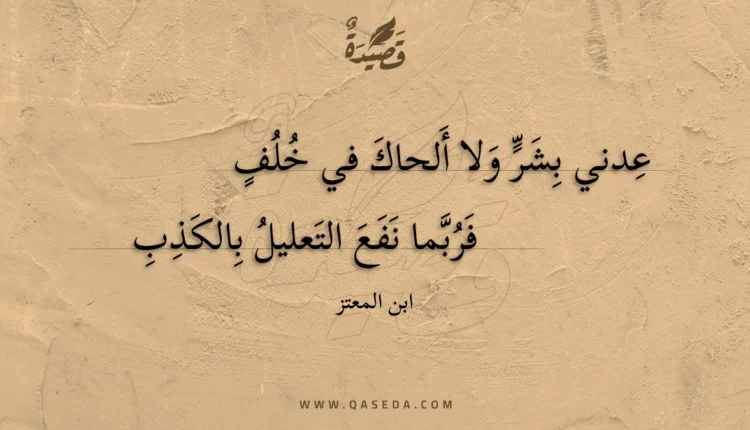 قَصِيدَةٌ
عِدني بِشَرٍّ وَلا أَلحاكَ في خُلُفٍ
فَرُبَّما نَفَعَ التَعليلُ بِالكَذِبِ
ابن المعتز
WWW.QASEDA.COM